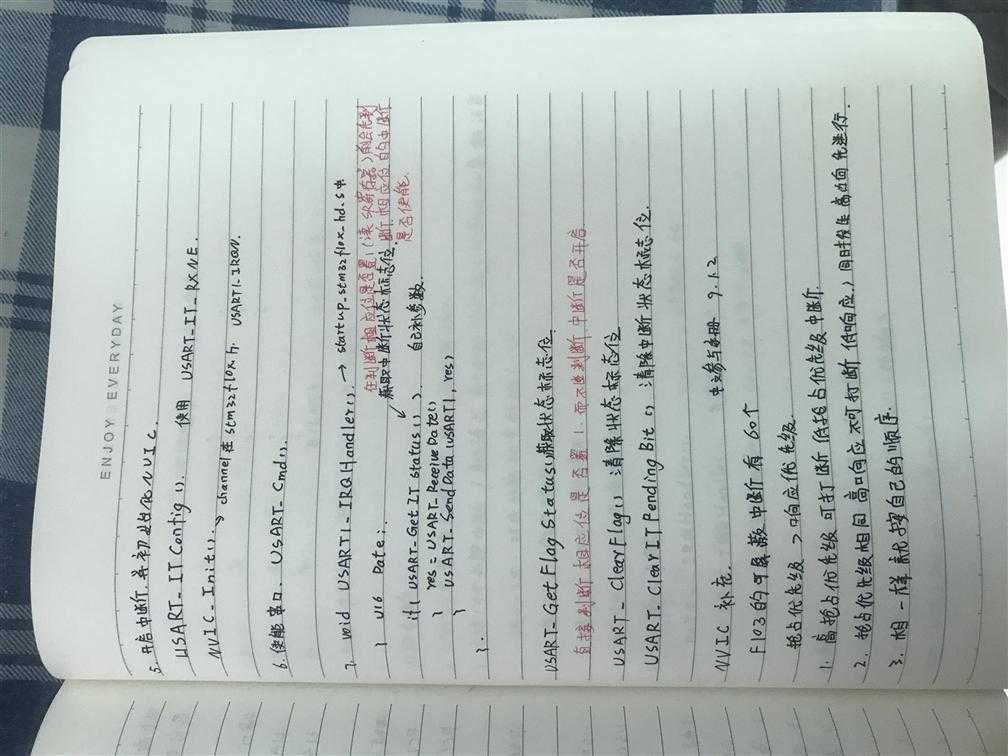 ENJOY EVERYDAY
5. 开启中断,并初始化NVIC.
USART_ITConfig(). 使用 USART_IT_RXNE.
NVIC_Init(). → channel 在 stm32f10x.h. USART1_IRQN.
6. 使能串口. USART_Cmd().
7. void USART1_IRQHandler(). → startup_stm32f10x_hd.s中
在判断相应位是否置1(读SR寄存器)前会先判断相应位的中断是否使能.
{ U16 Date;
获取中断状态标志位.
if( USART_GetITStatus( ) ). 自己补参数.
{ res = USART_ReceiveDate()
USART_SendData(USART1, res)
}
}.
USART_GetFlagStatus() 获取状态标志位.
直接判断相应位是否置1.而不先判断中断是否开启
USART_ClearFlag() 清除状态标志位
USART_ClearITPendingBit(). 清除中断状态标志位.
NVIC 补充. 中文参考手册 9.1.2
F103的可屏蔽中断有60个
抢占优先级 > 响应优先级.
1. 高抢占优先级可打断低抢占优先级中断.
2. 抢占优先级相同高响应不可打断低响应,同时发生高响应先进行.
3. 相一样就按自己的顺序.